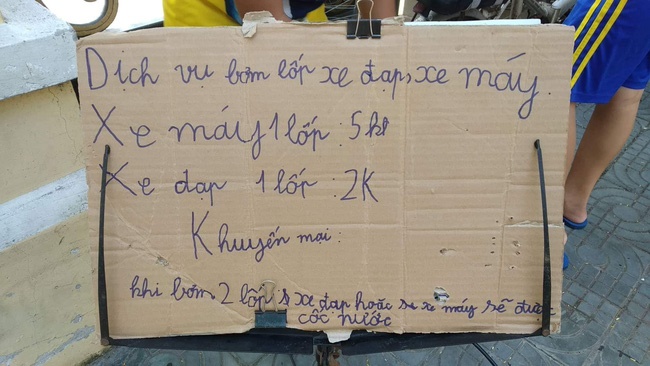 Dịch vụ bơm lốp xe đạp, xe máy.
Xe máy 1 lốp : 5k
Xe đạp 1 lốp : 2K
Khuyến mại :
khi bơm 2 lốp xe đạp hoặc xe máy sẽ được
cốc nước